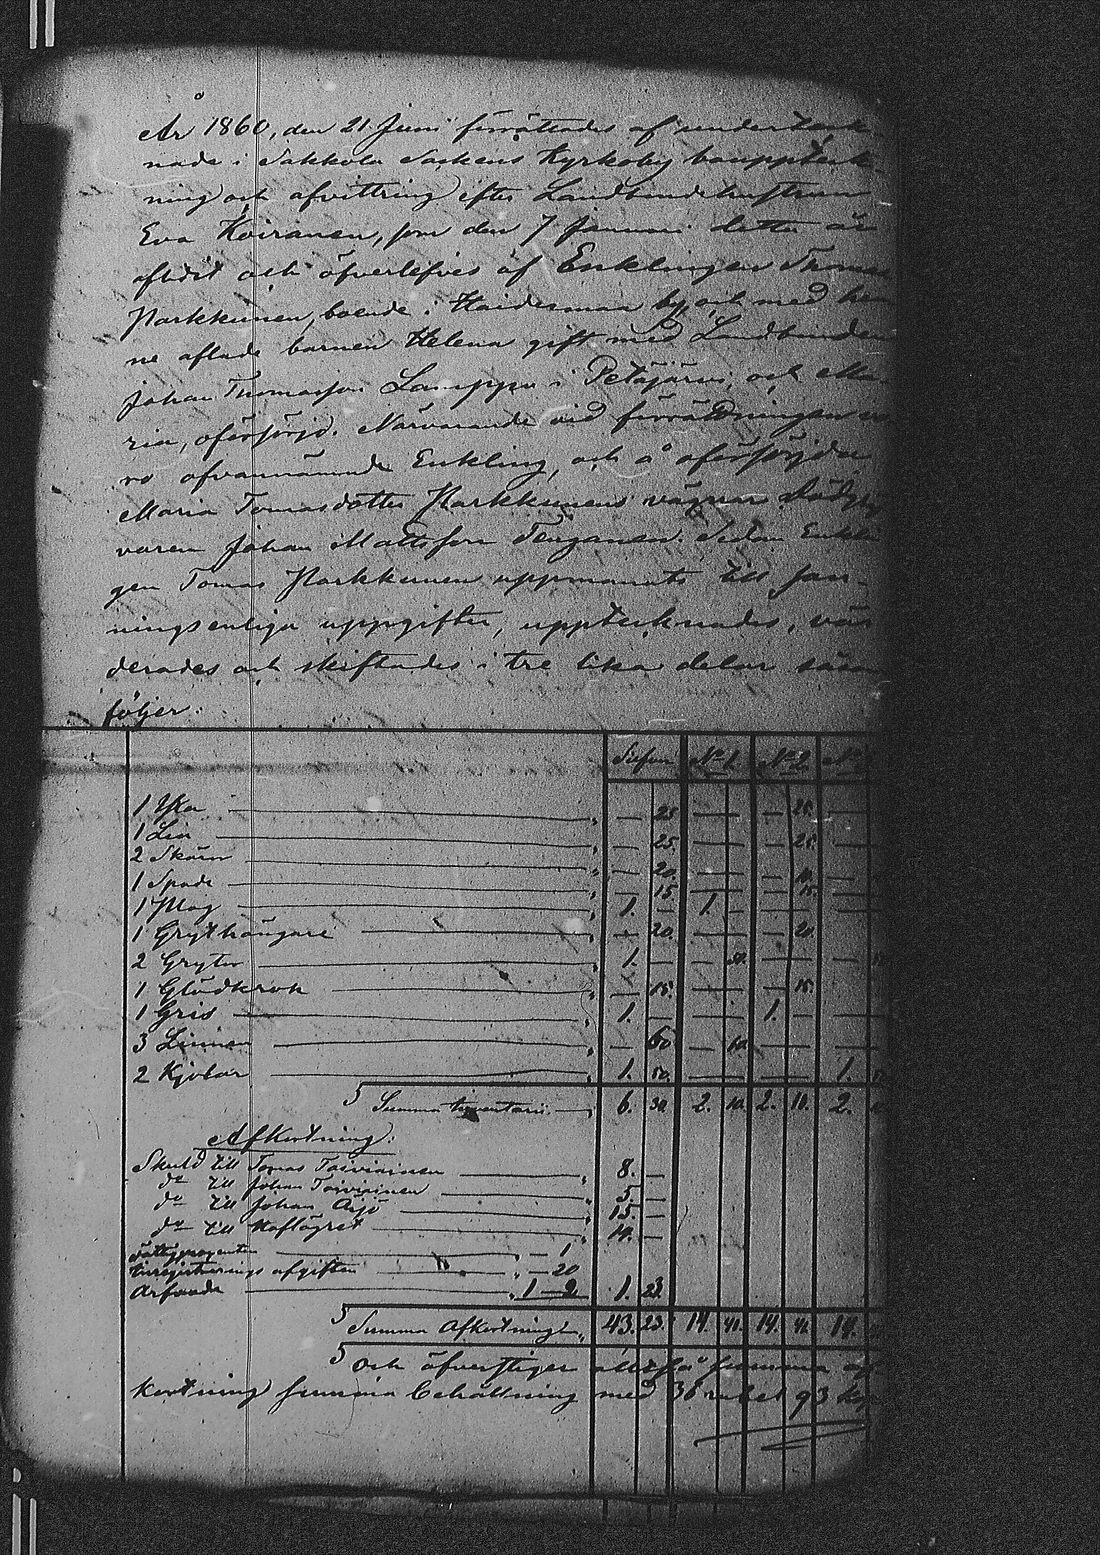 År 1860, den 21 Juni förrättades af underteck
nade i Sakkola Sockens Kyrkoby boupptek
ning och afvittring efter Landbondehustrun
Eva Koiranen, som den 7 Januari detta år
aflidit och öfverlefves af Enklingen Thomas
Parkkinen, boende i Haidermaa by och med hen
ne aflade barnen Helena gift med Landbonden
Johan Thomasson Lamppu i Petäjärvi, och Ma-
ria, oförsörjd. Närvarande vid förrättningen vo
ro ofvannämnde Enkling, och å oförsörjda
Maria Tomasdotter Parkkinens vägnar
varen Johan Mattsson. Sedan Enklin
gen Tomas Parkkinen uppmanats till san-
ningsenliga uppgifter, upptecknades, vär
derades och skiftades i tre lika delar såsom
följer:
Silfver No 1. No 2. No
1 Yxa — 25 — — 25.
1 Lia — 25. — — 25.
2 Skäror — 20. — — 10.
1 Spade — 15 — — 15.
1 Plog 1. — 1. —
1 Grythängare — 20. — — 20.
2 Grytor 1. —
1 Glödkrok — 15. — — 15.
1 Gris 1. — — — 1. —
3 Linnen — 60 — 10.
2 Kjolar 1. 50. — — 1.
Summa Inventarii 6. 30. 2. 10. 2. 10. 2.
Afkortning:
Skuld till Tomas Toiviainen 8. —
do till Johan Toiviainen 5. —
do till Johan 15. —
do till Hoflägret —
Fattigprocenten — 1
Inregistrerings afgiften — 20
Arfvode 1 — 2 1. 23.
Summa Afkortning 43. 23. 14. 41. 14. 41. 14.
och öfverstiger alltså summa af
kortning summa behållning med 36 rubel 93 kop